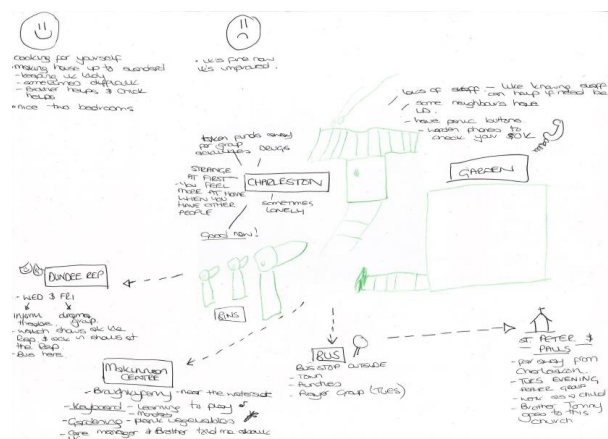 cooking for yourself
- making house up to standard
- keeping it tidy
- sometimes difficult
- Brother helps &
helps
• nice two bedrooms
• it's fine now
it's improved.
- lots of staff - like knowing staff
can help if need be
- some neighbours have
LD.
- have panic buttons
- warden phones to
check your OK
taken funds away
for group
DRUGS
STRANGE
AT FIRST
- YOU FEEL
MORE AT HOME
WHEN YOU
HAVE OTHER
PEOPLE
CHARLESTON
SOMETIMES
LONELY
Good now!
GARDEN
DUNDEE REP
- WED & FRI
theatre group.
- which shows
Rep & look in shows at
the Rep
- Bus here.
BINS
Mckinnon
CENTRE
- Broughty Ferry - near the waterside
- Keyboard - learning to play
- Mondays
- Gardening - plant vegetables
- Care manager & Brother told me about
BUS
BUS STOP OUTSIDE
- Town
- Prayer Group (TUES)
ST. PETER &
PAULS
- far away from
Charleston
- TUES EVENING,
PRAYER GROUP
- went as a child
- Brother Tommy
goes to this
church